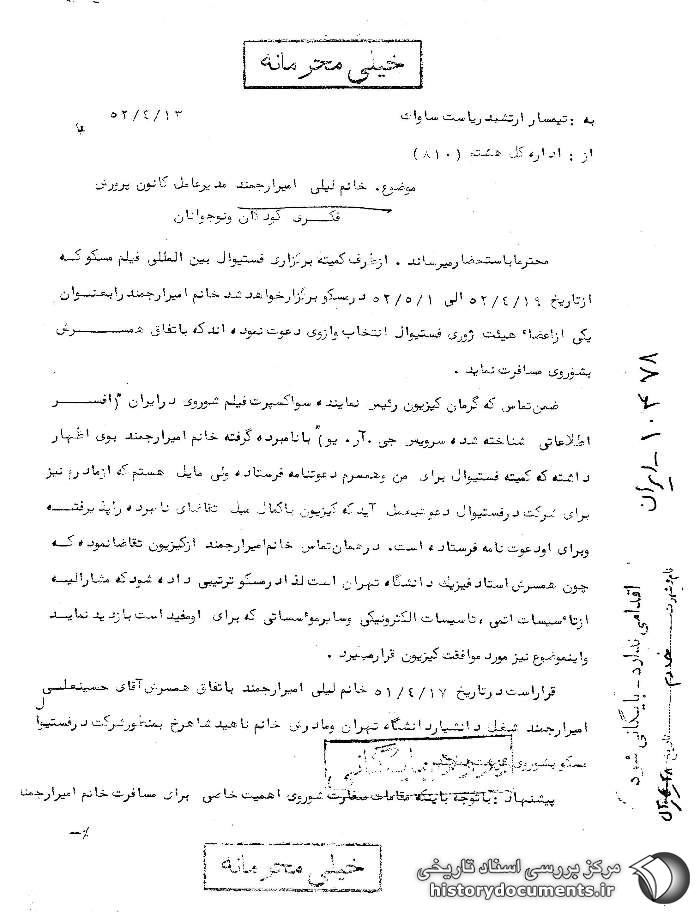 خیلی محرمانه
به : تیمسار ارتشبد ریاست ساواک ۵۲/۴/۱۳
از : اداره کل هشتم (۸۱۰)
موضوع. خانم لیلی امیرارجمند مدیرعامل کانون پرورش
فکری کودکان ونوجوانان
محترما باستحضار میرساند . ازطرف کمیته برگزاری فستیوال بین المللی فیلم مسکو که
ازتاریخ ۵۲/۴/۱۹ الی ۵۲/۵/۱ درمسکو برگزارخواهد شد خانم امیرارجمند رابعنوان
یکی ازاعضاء هیئت ژوری فستیوال انتخاب وازوی دعوت نموده اند که باتفاق همسرش
بشوروی مسافرت نماید .
ضمن تماس که گرمان کیزیون رئیس نماینده سواکسپرت فیلم شوروی درایران (افسر
اطلاعاتی شناخته شده سرویس جی .آر. یو) بانامبرده گرفته خانم امیرارجمند بوی اظهار
داشته که کمیته فستیوال برای من وهمسرم دعوتنامه فرستاده ولی مایل هستم که ازمادرم نیز
برای شرکت درفستیوال دعوت بعمل آید که کیزیون باکمال میل تقاضای نامبرده راپذیرفته
وبرای اودعوت نامه فرستاده است. درهمان تماس خانم امیرارجمند ازکیزیون تقاضانموده که
چون همسرش استاد فیزیک دانشگاه تهران است لذا درمسکو ترتیبی داده شود که مشارالیه
ازتاٴسیسات اتمی ، تاسیسات الکترونیکی وسایرموٴسساتی که برای اومفید است بازدید نماید
واینموضوع نیز مورد موافقت کیزیون قرارمیگیرد .
قراراست درتاریخ ۵۱/۴/۱۷ خانم لیلی امیرارجمند باتفاق همسرش آقای حسینعلی
امیرارجمند شغل دانشیاردانشگاه تهران ومادری خانم ناهید شاهرخ بمنظورشرکت درفستیوال
مسکو بشوروی
پیشنهاد : باتوجه باینکه مقامات سفارت شوروی اهمیت خاصی برای مسافرت خانم امیرارجمند
خیلی محرمانه
ایران - ۱۰۴۷۸
اقدامی ندارد - بایگانی شود
مرکز بررسی اسناد تاریخی
historydocuments.ir